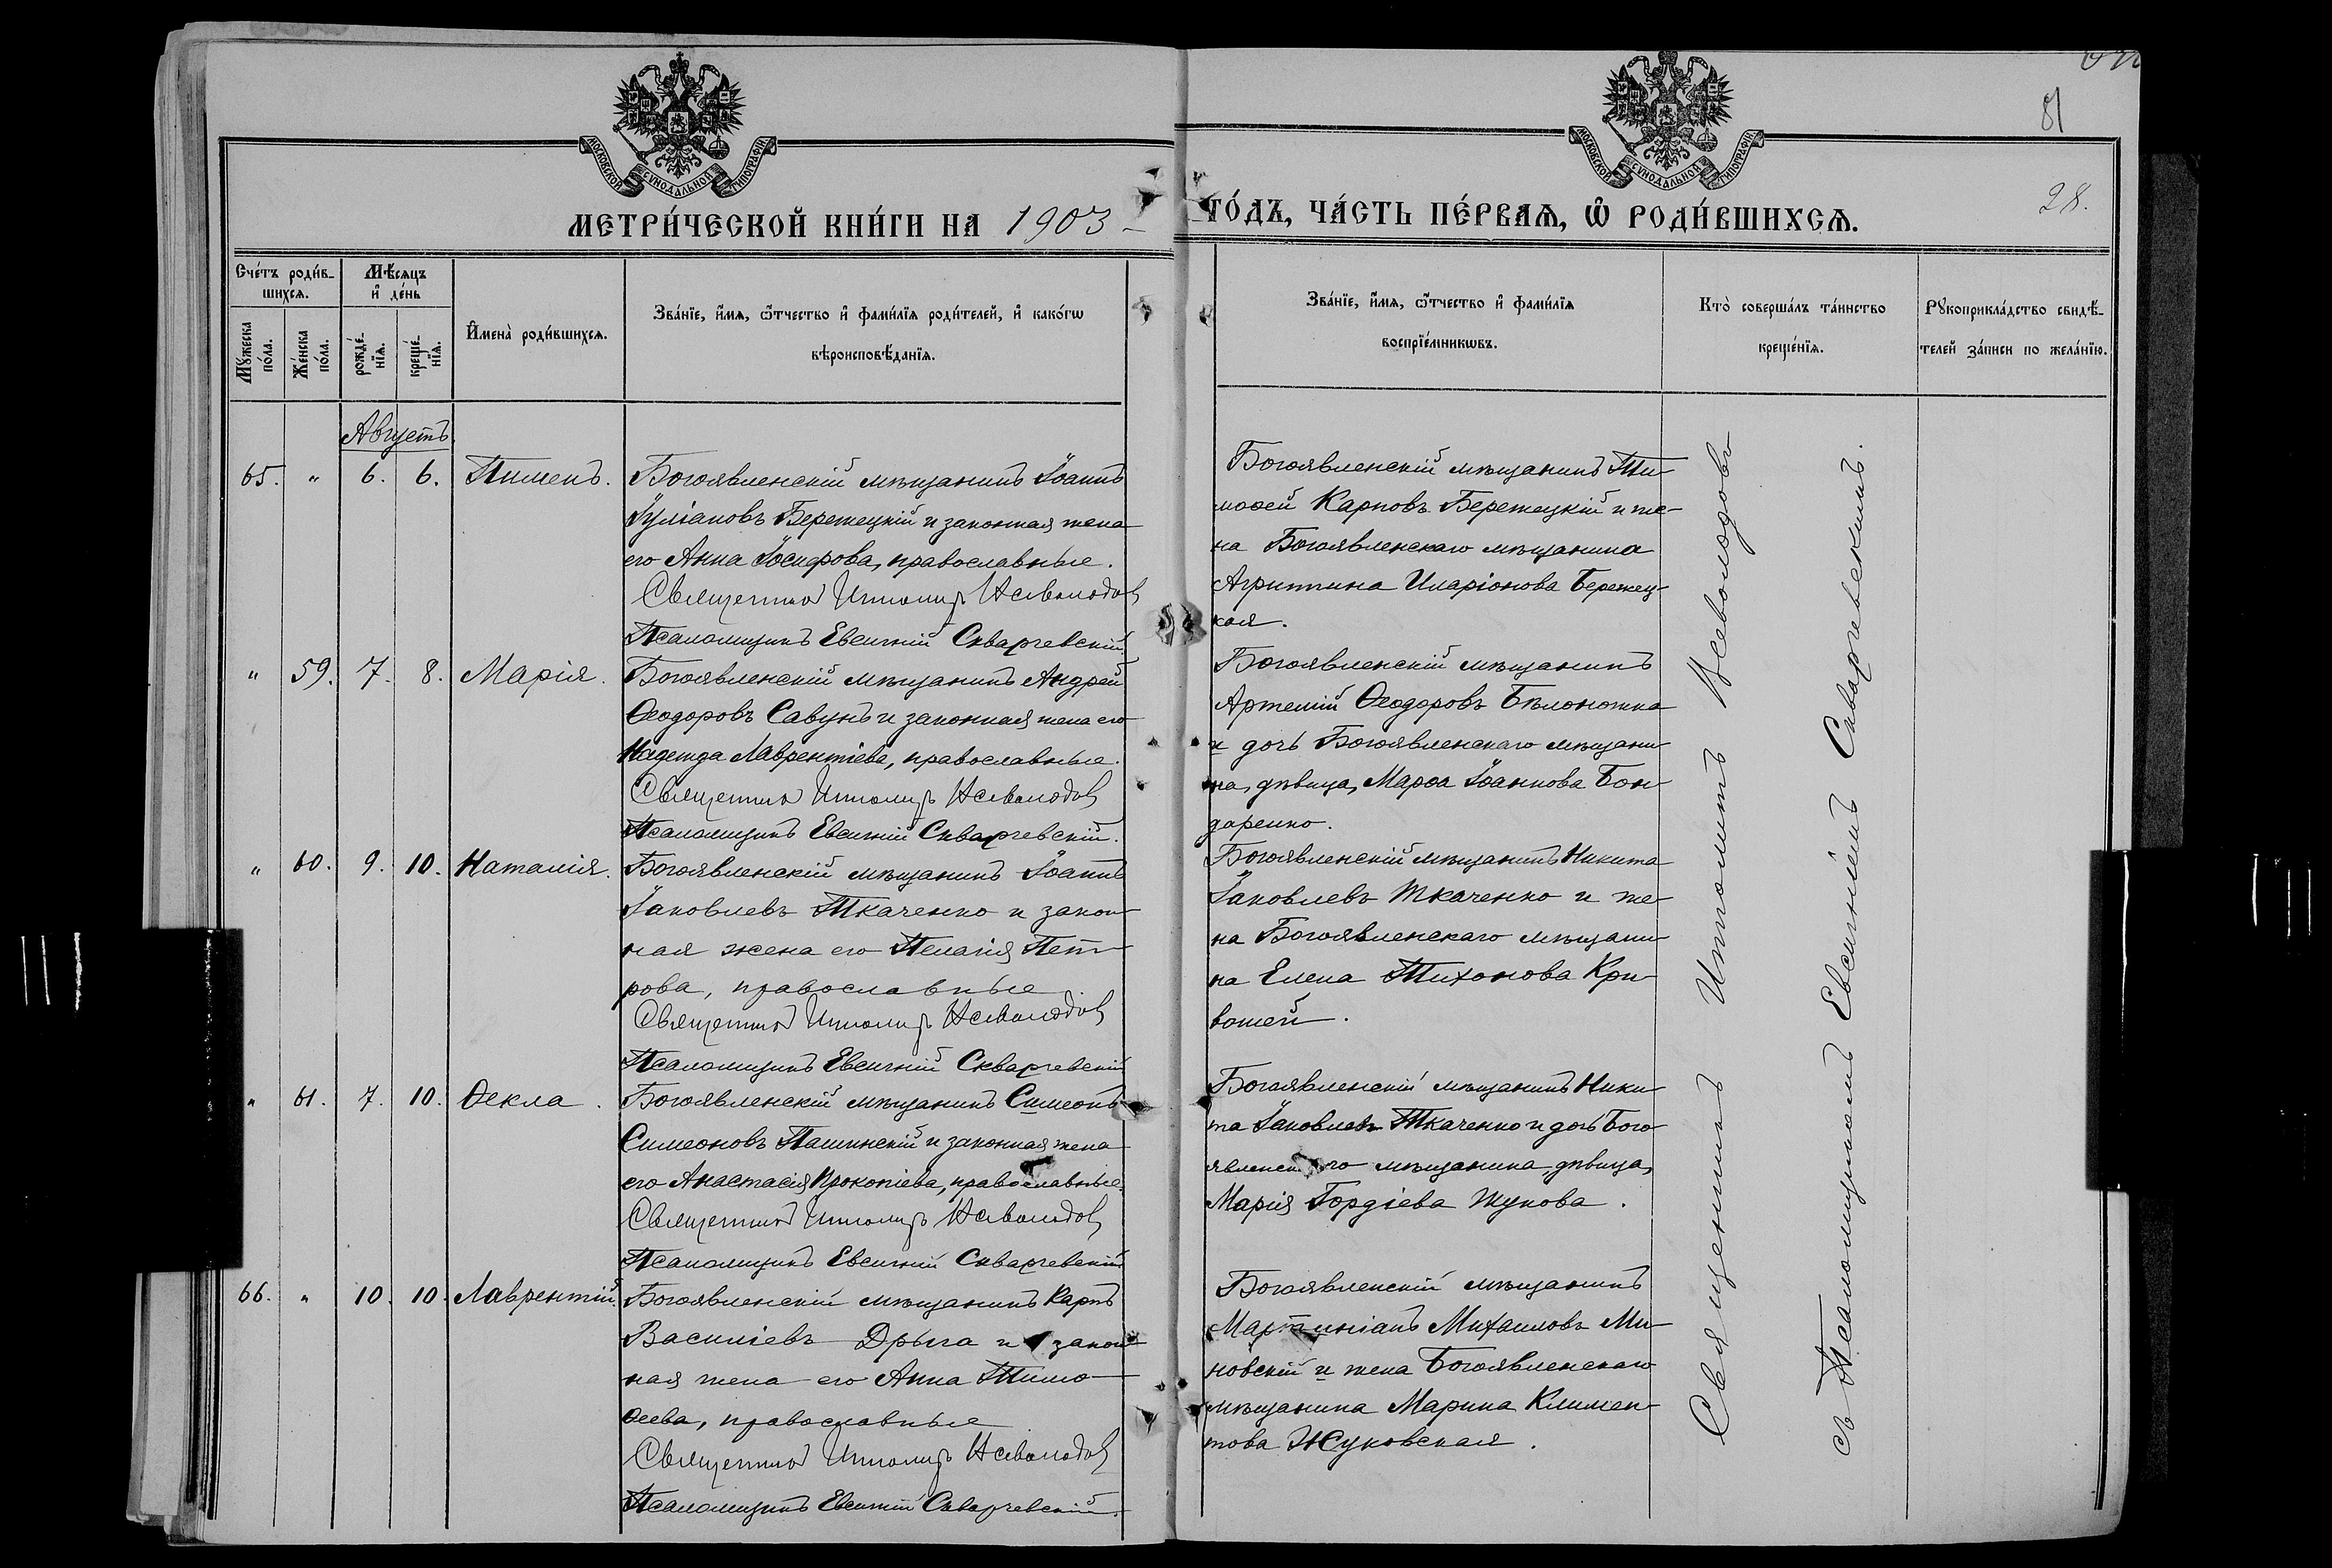 МОСКОВСКОЙ СѴНОДАЛЬНОЙ ТИПОГРАФІИ
МОСКОВСКОЙ СѴНОДАЛЬНОЙ ТИПОГРАФІИ
81
28.
МЕТРИ́ЧЕСКОЙ КНИ́ГИ НА 1903 ГО́ДЪ, ЧА́СТЬ ПЕ́РВАѦ, Ѽ РОДИ́ВШИХСѦ.
Сче́тъ роди́в-
шихсѧ.
Мѣ́сѧцъ
и҆ де́нь
Мꙋ́жеска по́ла.
Же́нска по́ла.
рожде́-
нїѧ.
креще́-
нїѧ.
И҆мена̀ роди́вшихсѧ.
Зва́нїе, и҆́мѧ, ѻ҆́тчество и҆ фами́лїѧ роди́телей, и҆ како́гѡ
вѣроисповѣ́данїѧ.
Зва́нїе, и҆́мѧ, ѻ҆́тчество и҆ фами́лїѧ
воспрїе́мникѡвъ.
Кто̀ соверша́лъ та́инство
креще́нїѧ.
Рꙋкоприкла́дство свидѣ́-
телей за́писи по жела́нїю.
Августъ
65. " 6. 6. Пименъ.
Богоявленскій мѣщанинъ Іоаннъ
Іуліановъ Бережецкій и законная жена
его Анна Іосифова, православные.
Священникъ Ипполитъ Всеволодовъ
Псаломщикъ Евсигній Скварчевскій.
Богоявленскій мѣщанинъ Ти-
моѳей Карповъ Бережецкій и же-
на Богоявленскаго мѣщанина
Агриппина Иларіонова Бережец-
кая.
" 59. 7. 8. Марія.
Богоявленскій мѣщанинъ Андрей
Ѳеодоровъ Савунъ и законная жена его
Надежда Лаврентіева, православные.
Священникъ Ипполитъ Всеволодовъ
Псаломщикъ Евсигній Скварчевскій.
Богоявленскій мѣщанинъ
Артемій Ѳеодоровъ Бѣлоножка
и дочь Богоявленскаго мѣщани-
на, дѣвица, Марѳа Іоаннова Бон-
даренко.
" 60. 9. 10. Наталія.
Богоявленскій мѣщанинъ Іоаннъ
Іаковлевъ Ткаченко и закон-
ная жена его Пелагія Пет-
рова, православные
Священникъ Ипполитъ Всеволодовъ
Псаломщикъ Евсигній Скварчевскій
Богоявленскій мѣщанинъ Никита
Іаковлевъ Ткаченко и же-
на Богоявленскаго мѣщани-
на Елена Тихонова Кри-
вошей.
" 61. 7. 10. Ѳекла.
Богоявленскій мѣщанинъ Симеонъ
Симеоновъ Пашинскій и законная жена
его Анастасія Прокопіева, православные.
Священникъ Ипполитъ Всеволодовъ
Псаломщикъ Евсигній Скварчевскій
Богоявленскій мѣщанинъ Ники-
та Іаковлевъ Ткаченко и дочь Бого-
явленскаго мѣщанина, дѣвица,
Марія Гордіева Жукова.
66. " 10. 10. Лаврентій.
Богоявленскій мѣщанинъ Карпъ
Василіевъ Дрыга и закон-
ная жена его Анна Тимо-
ѳеева, православные
Священникъ Ипполитъ Всеволодовъ
Псаломщикъ Евсигній Скварчевскій.
Богоявленскій мѣщанинъ
Мартиніанъ Михаиловъ Ми-
новскій и жена Богоявленскаго
мѣщанина Марина Климен-
това Жуковская.
Священникъ Ипполитъ Всеволодовъ
съ Псаломщикомъ Евсигніемъ Скварчевскимъ.